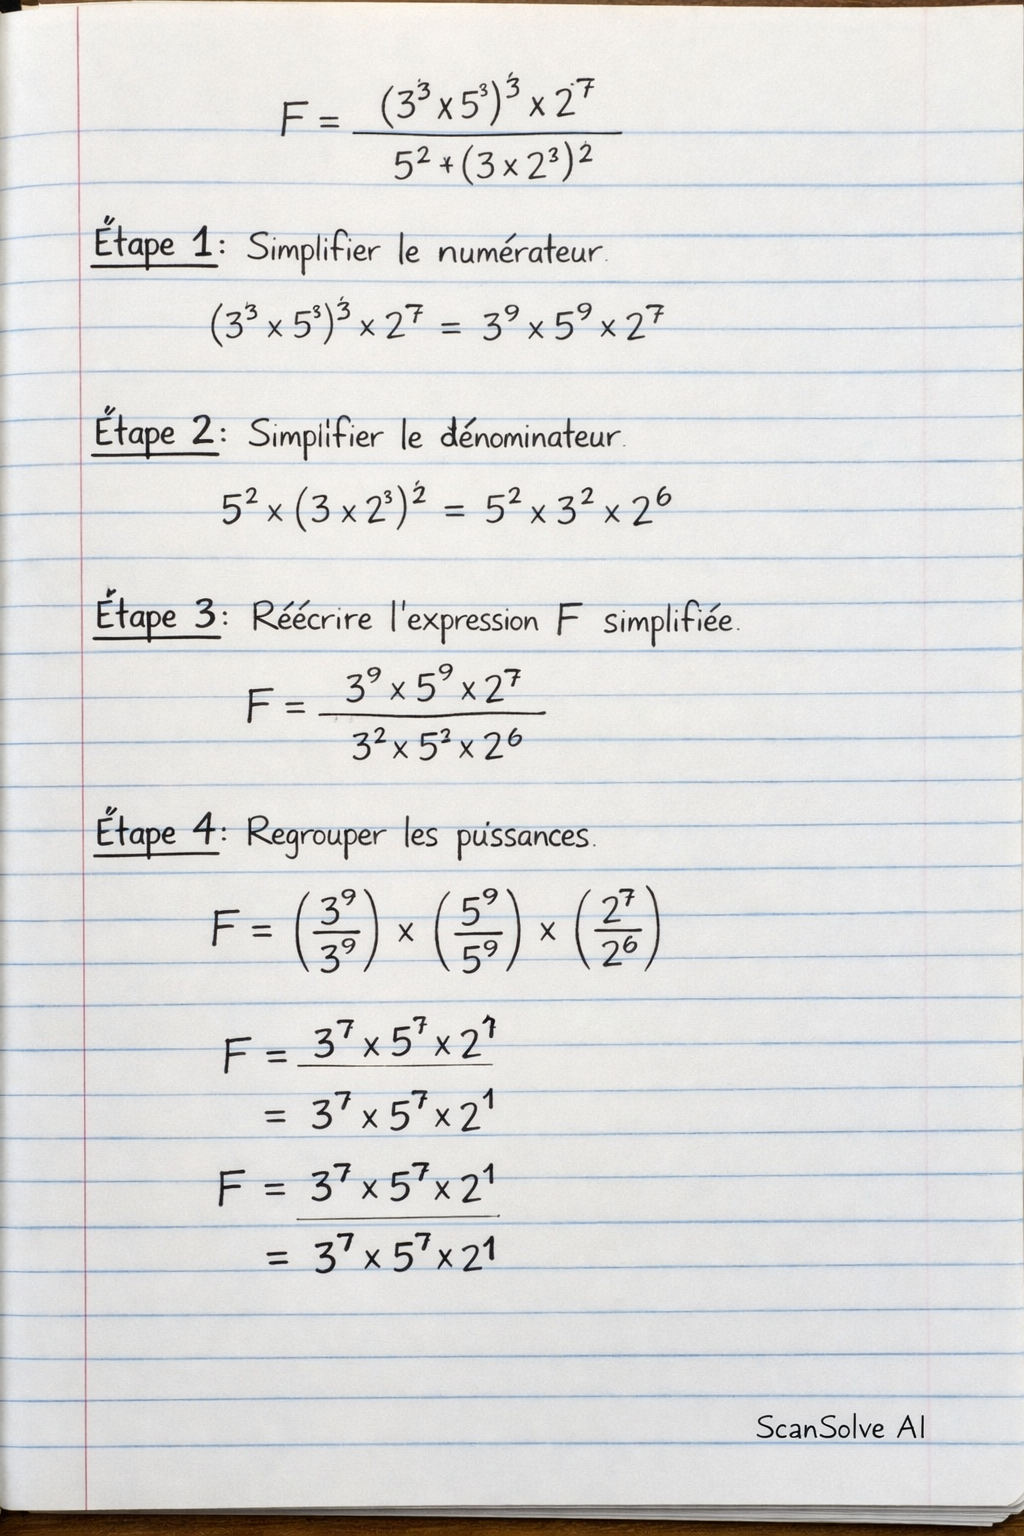 F = (3³ × 5³)³ × 2⁷
5² + (3 × 2³)²
Étape 1: Simplifier le numérateur.
(3³ × 5³)³ × 2⁷ = 3⁹ × 5⁹ × 2⁷
Étape 2: Simplifier le dénominateur.
5² × (3 × 2³)² = 5² × 3² × 2⁶
Étape 3: Réécrire l'expression F simplifiée.
F = 3⁹ × 5⁹ × 2⁷
3² × 5² × 2⁶
Étape 4: Regrouper les puissances.
F = (3⁹/3⁹) × (5⁹/5⁹) × (2⁷/2⁶)
F = 3⁷ × 5⁷ × 2¹
= 3⁷ × 5⁷ × 2¹
F = 3⁷ × 5⁷ × 2¹
= 3⁷ × 5⁷ × 2¹
ScanSolve AI